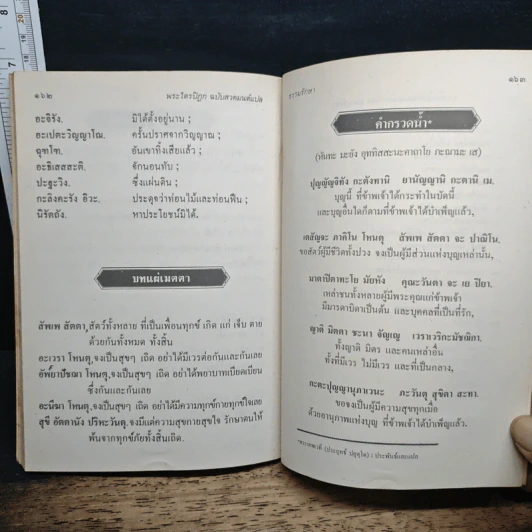 ๑๖๒ พระไตรปิฎก ฉบับสวดมนต์แปล
อะจิรัง. มิได้ตั้งอยู่นาน ;
อะเปตะวิญญาโณ. ครั้นปราศจากวิญญาณ ;
ฉุฑโฑ. อันเขาทิ้งเสียแล้ว ;
อะธิเสสสะติ. จักนอนทับ ;
ปะฐะวิง. ซึ่งแผ่นดิน ;
กะลิงคะรัง อิวะ. ประดุจว่าท่อนไม้และท่อนฟืน ;
นิรัตถัง. หาประโยชน์มิได้.
บทแผ่เมตตา
สัพเพ สัตตา, สัตว์ทั้งหลาย ที่เป็นเพื่อนทุกข์ เกิด แก่ เจ็บ ตาย
ด้วยกันทั้งหมด ทั้งสิ้น
อะเวรา โหนตุ, จงเป็นสุขๆ เถิด อย่าได้มีเวรต่อกันและกันเลย
อัพ๎ยาปัชฌา โหนตุ, จงเป็นสุขๆ เถิด อย่าได้พยาบาทเบียดเบียน
ซึ่งกันและกันเลย
อะนีฆา โหนตุ, จงเป็นสุขๆ เถิด อย่าได้มีความทุกข์กายทุกข์ใจเลย
สุขี อัตตานัง ปริหะวันตุ, จงมีแต่ความสุขกายสุขใจ รักษาตนให้
พ้นจากทุกข์ภัยทั้งสิ้นเถิด.
๑๖๓
คำกรวดน้ำ*
(หันทะ มะยัง อุททิสสะนะคาถาโย ภะณามะ เส)
ปุญญัสสิทานิ กะตัสสะ ยานัญญานิ กะตานิ เม.
บุญนี้ ที่ข้าพเจ้าได้กระทำในบัดนี้
และบุญอื่นใดก็ตามที่ข้าพเจ้าได้บำเพ็ญแล้ว,
เตสัญจะ ภาคิโน โหนตุ สัพเพ สัตตา จะ ปาณิโน.
ขอสัตว์ผู้มีชีวิตทั้งปวง จงเป็นผู้มีส่วนแห่งบุญเหล่านั้น,
มาตาปิตาทะโย มัยหัง คุณะวันตา จะ เย ปิยา.
เหล่าชนทั้งหลายผู้มีพระคุณแก่ข้าพเจ้า
มีมารดาบิดาเป็นต้น และบุคคลที่เป็นที่รัก,
ญาติ มิตตา ชะนา จัญเญ
ทั้งญาติ มิตร และคนเหล่าอื่น
ทั้งที่มีเวร ไม่มีเวร และที่เป็นกลาง,
ภะวันตุ สุขิตา สะทา.
ขอจงเป็นผู้มีความสุขทุกเมื่อ
ด้วยอานุภาพแห่งบุญ ที่ข้าพเจ้าได้บำเพ็ญแล้ว.
(ประยุทธ์ ปยุตฺโต) : ประพันธ์และแปล